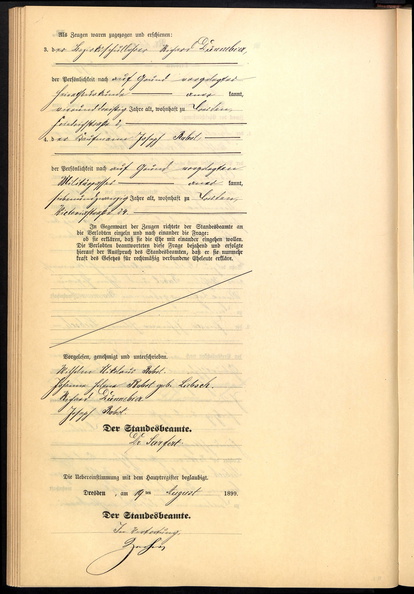 Als Zeugen waren zugezogen und erschienen:
3. der Bezirksschullehrer Richard Dünnebier
der Persönlichkeit nach auf Grund vorgelegter
kannt,
vierunddreißig Jahre alt, wohnhaft zu Dresden
4. der Kaufmann Joseph Nobel
der Persönlichkeit nach auf Grund vorgelegten
Militärpasses anerkannt,
siebenundzwanzig Jahre alt, wohnhaft zu Dresden,
24.
In Gegenwart der Zeugen richtete der Standesbeamte an
die Verlobten einzeln und nach einander die Frage:
ob sie erklären, daß sie die Ehe mit einander eingehen wollen.
Die Verlobten beantworteten diese Frage bejahend und erfolgte
hierauf der Ausspruch des Standesbeamten, daß er sie nunmehr
kraft des Gesetzes für rechtmäßig verbundene Eheleute erkläre.
Vorgelesen, genehmigt und unterschrieben.
Wilhelm Nikolaus Nobel
Johanna Nobel geb.
Richard Dünnebier
Joseph Nobel
Der Standesbeamte.
Dr.
Die Uebereinstimmung mit dem Hauptregister beglaubigt.
Dresden, am 9ten August 1899.
Der Standesbeamte.
In Vertretung.